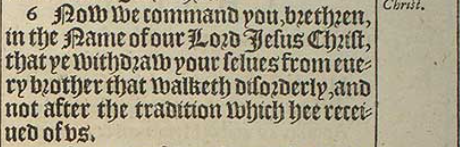 6 Now we command you, brethren,
in the Name of our Lord Jesus Christ,
that ye withdraw your selues from eue-
ry brother that walketh disorderly, and
not after the tradition which hee recei-
ued of vs.
Christ.